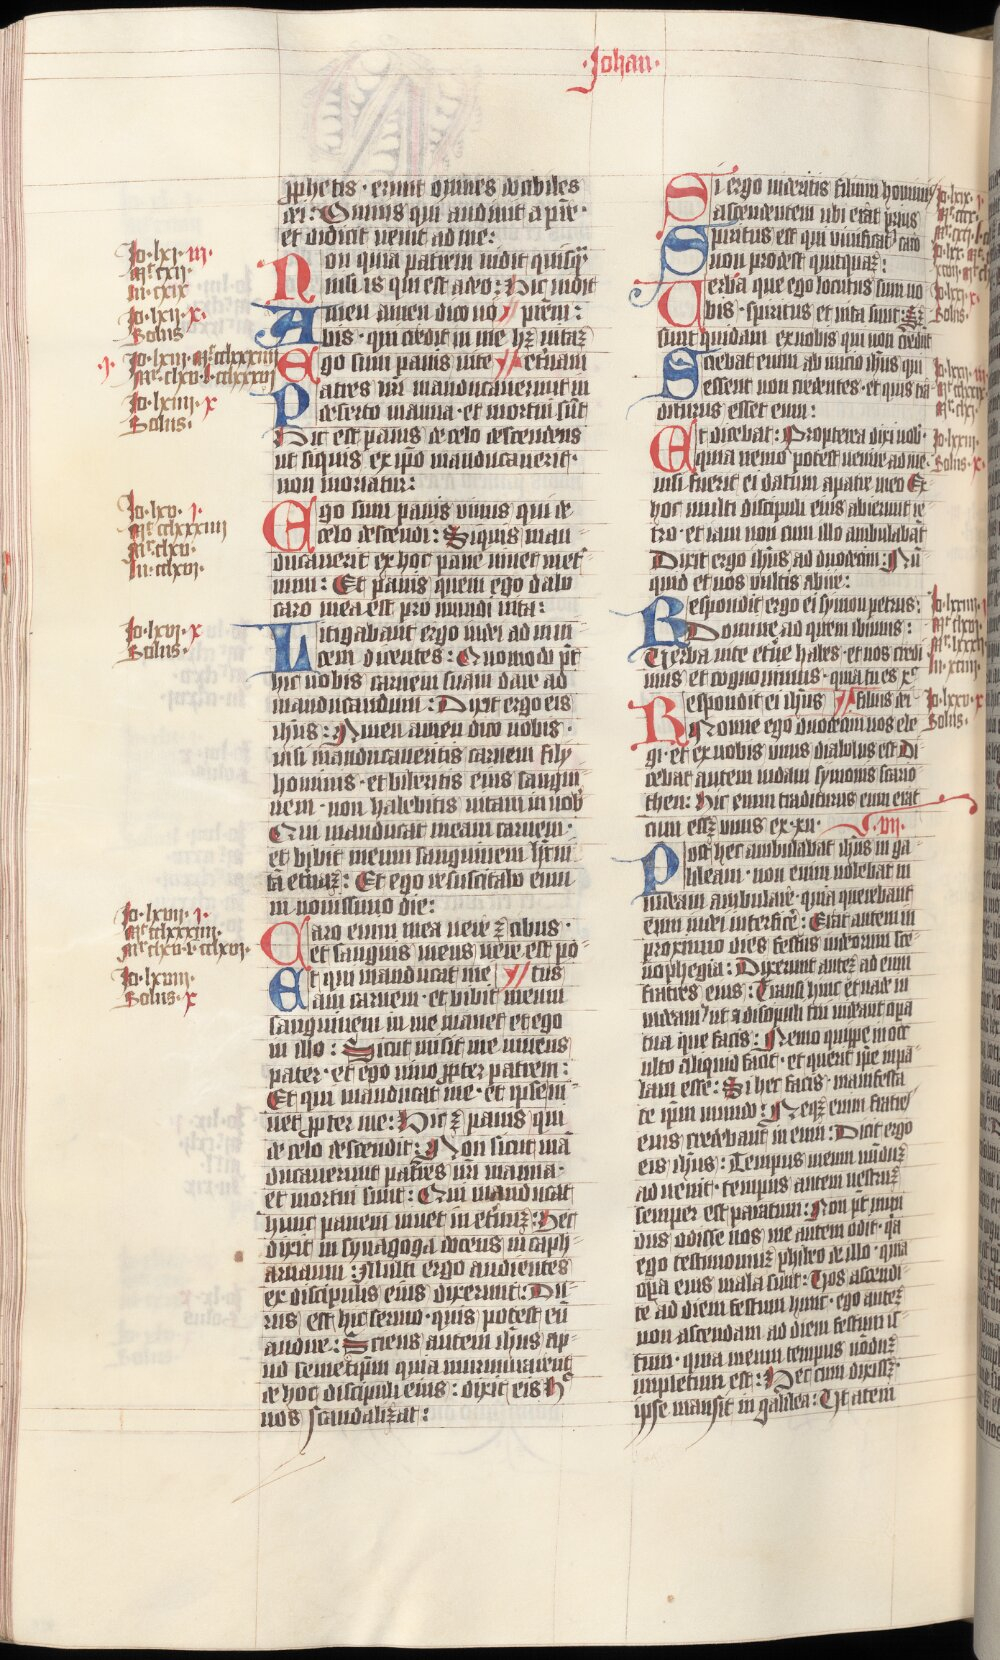 ·Johan·
pphetis · erunt omnes docibiles
dei : Omnis qui audivit a pr̄e ·
et didicit venit ad me :
Non quia patrem vidit quisq̄
nisi is qui est a deo : hic vidit
Amen amen dico vo // prem :
bis · qui credit in me hꝫ vitaꝫ
Ego sum panis vite // et̄nam
Patres vr̄i manducaverunt in
deserto manna · et mortui sūt
Hic est panis de celo descendens
ut siquis ex ip̄o manducaverit ·
non moriatur :
Ego sum panis vivus qui de
celo descendi : Siquis man
ducaverit ex hoc pane vivet in et̄
num : Et panis quem ego dabo
caro mea est pro mundi vita :
Litigabant ergo iudei ad invi
cem dicentes : Quomodo pt̄
hic nobis carnem suam dare ad
manducandum : Dixit ergo eis
ih̄us : Amen amen dico vobis ·
nisi manducaveritis carnem filij
hominis · et biberitis eius sangui
nem · non habebitis vitam in vob̄
Qui manducat meam carnem ·
et bibit meum sanguinem hꝫ vi
tā et̄naꝫ : Et ego resuscitabo eum
in novissimo die :
Caro enim mea vere ē cibus ·
et sanguis meus vere est po
Et qui manducat me // tus
am carnem · et bibit meum
sanguinem in me manet et ego
in illo : Sicut misit me vivens
pater · et ego vivo ꝓpter patrem :
Et qui manducat me · et ipse vi
vet ꝓpter me : Hic ē panis qui
de celo descendit : Non sicut mā
ducaverunt patres vr̄i manna ·
et mortui sunt : Qui manducat
hunc panem vivet in et̄nuꝫ : Hec
dixit in synagoga docens in caph
arnaum : Multi ergo audientes
ex discipulis eius dixerunt : Du
rus est hic sermo · quis potest eū
audire : Sciens autem ih̄us ap
ud semetip̄m quia murmurarent
de hoc discipuli eius : dixit eis h°
vos scandalizat :
Jo · lxi · iii ·
Mͬ cxii ·
lu · cxix
Jo · lxii · x ·
Solus
Jo · lxiiii · x
Solus ·
Jo · lxv · j ·
Mͭ cclxxxiiii
Mͬ clxv ·
lu · cclxvi ·
Jo · lxvi · x
Solus ·
Jo · lxvii · j ·
Jo · lxviii ·
Solus · x
Si ergo videritis filium hominis
ascendentem ubi erat prius
Spiritus est qui vivificat caro
non prodest quicquaꝫ :
Verba que ego locutus sum vo
bis · spiritus et vita sunt : Sꝫ
sunt quidam ex vobis qui non credūt
Sciebat enim ab inicio ih̄us qui
essent non credentes · et quis tra
diturus esset eum :
Et dicebat : Propterea dixi vob̄ ·
quia nemo potest venire ad me ·
nisi fuerit ei datum a patre meo Ex
hoc multi discipuli eius abierunt re
tro · et iam non cum illo ambulabāt
Dixit ergo ih̄us ad duodecim : Nū
quid et vos vultis abire :
Respondit ergo ei symon petrus :
Domine ad quem ibimus :
Verba vite et̄ne habes · et nos credi
mus et cognovimus · quia tu es xᶜ
Respondit ei ih̄us // filius dei ·
Nonne ego duodecim vos ele
gi · et ex vobis unus diabolus est Di
cebat autem iudam symonis scario
then : hic enim traditurus eum erat
cum esset unus ex · xii · · vii ·
Post hec ambulabat ih̄us in ga
lileam · non enim volebat in
iudeam ambulare · quia querebant
eum iudei interfice : Erat autem in
proximo dies festus iudeorum sce
nophegia : Dixerunt auteꝫ ad eum
fratres eius : Transi hinc et vade in
iudeam / ut ⁊ discipuli tui videant oꝑa
tua que facis : Nemo quippe in occ
ulto aliquid facit · et querit ip̄e in pa
lam esse : Si hec facis · manifesta
te ip̄m mundo : Neqꝫ enim fratres
eius credebant in eum : Dicit ergo
eis ih̄us : Tempus meum nōduꝫ
advenit · tempus autem vestruꝫ
semper est paratum : Non pt̄ mun
dus odisse vos me autem odit · qā
ego testimoniuꝫ phibeo de illo · quia
oꝑa eius mala sunt : Vos ascendi
te ad diem festum hunc · ego auteꝫ
non ascendam ad diem festum is
tum · quia meum tempus nōduꝫ
impletum est : Hec cum dixisseꝫ
ipse mansit in galilea : Ut autem
Solus ·
Solus · x ·
Jo · lxxv · x
Solus ·